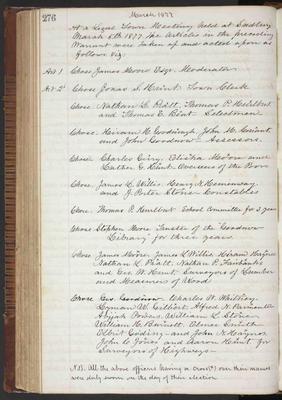 276
March 1877
At a Legal Town Meeting held at Sudbury
March 5th 1877. the Articles in the preceding
Warrant were taken up and acted upon as
follows viz.
Art 1 Chose James Moore Esqr. Moderator.
Art 2d Chose Jonas S. Hunt. Town Clerk
Chose Nathan L. Pratt, Thomas P. Hurlbut
and Thomas E. Bent. Selectmen
Chose. Hiram H. Goodnough, John H.
and John Goodnow Assessors.
Chose Charles
Luther G. Hunt. Overseers of the Poor
Chose James L. Willis Henry H. Hemenway
and J. Porter Stone. Constables
Chose Thomas P. Hurlbut School Committee for 3 years
Chose Stephen Moore Trustee of the Goodnow
Library for three years
Chose James Moore. James L. Willis Hiram Haynes
Nathan L. Pratt. Fairbanks
and Geo. W. Hunt. Surveyors of Lumber
and Measurers of Wood
Chose Geo. Goodnow Charles W.
William L. Stone
William H. Barnett. Smith
and John N. Haynes
John C. Jones and Aaron Hunt for
Surveyors of Highways
N.B. All the above officers having a cross(x) over their names
were duly sworn on the day of their election